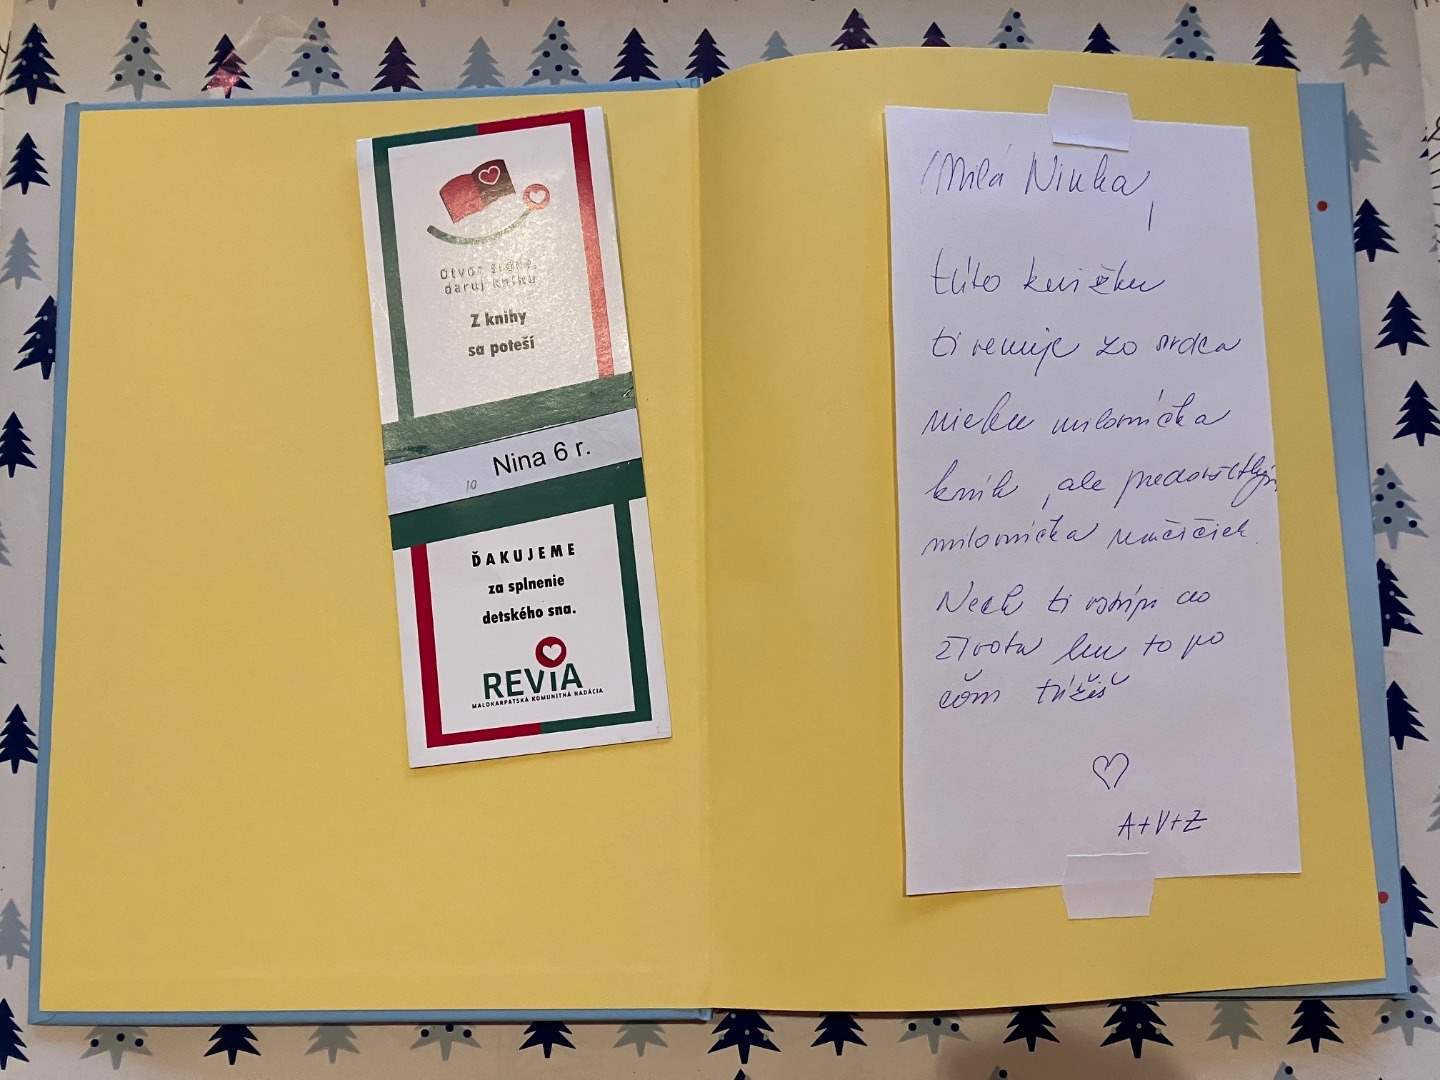 Otvor srdce,
daruj knihu
Z knihy
sa poteší
Nina 6 r.
10
ĎAKUJEME
za splnenie
detského sna.
REViA
MALOKARPATSKÁ KOMUNITNÁ NADÁCIA
Milá Ninka,
túto knižku
ti venuje zo srdca
milovníčka
kníh, ale predovšetkým
milovníčka
Nech ti vstúpi do
života len to po
čom túžiš
A+V+Z